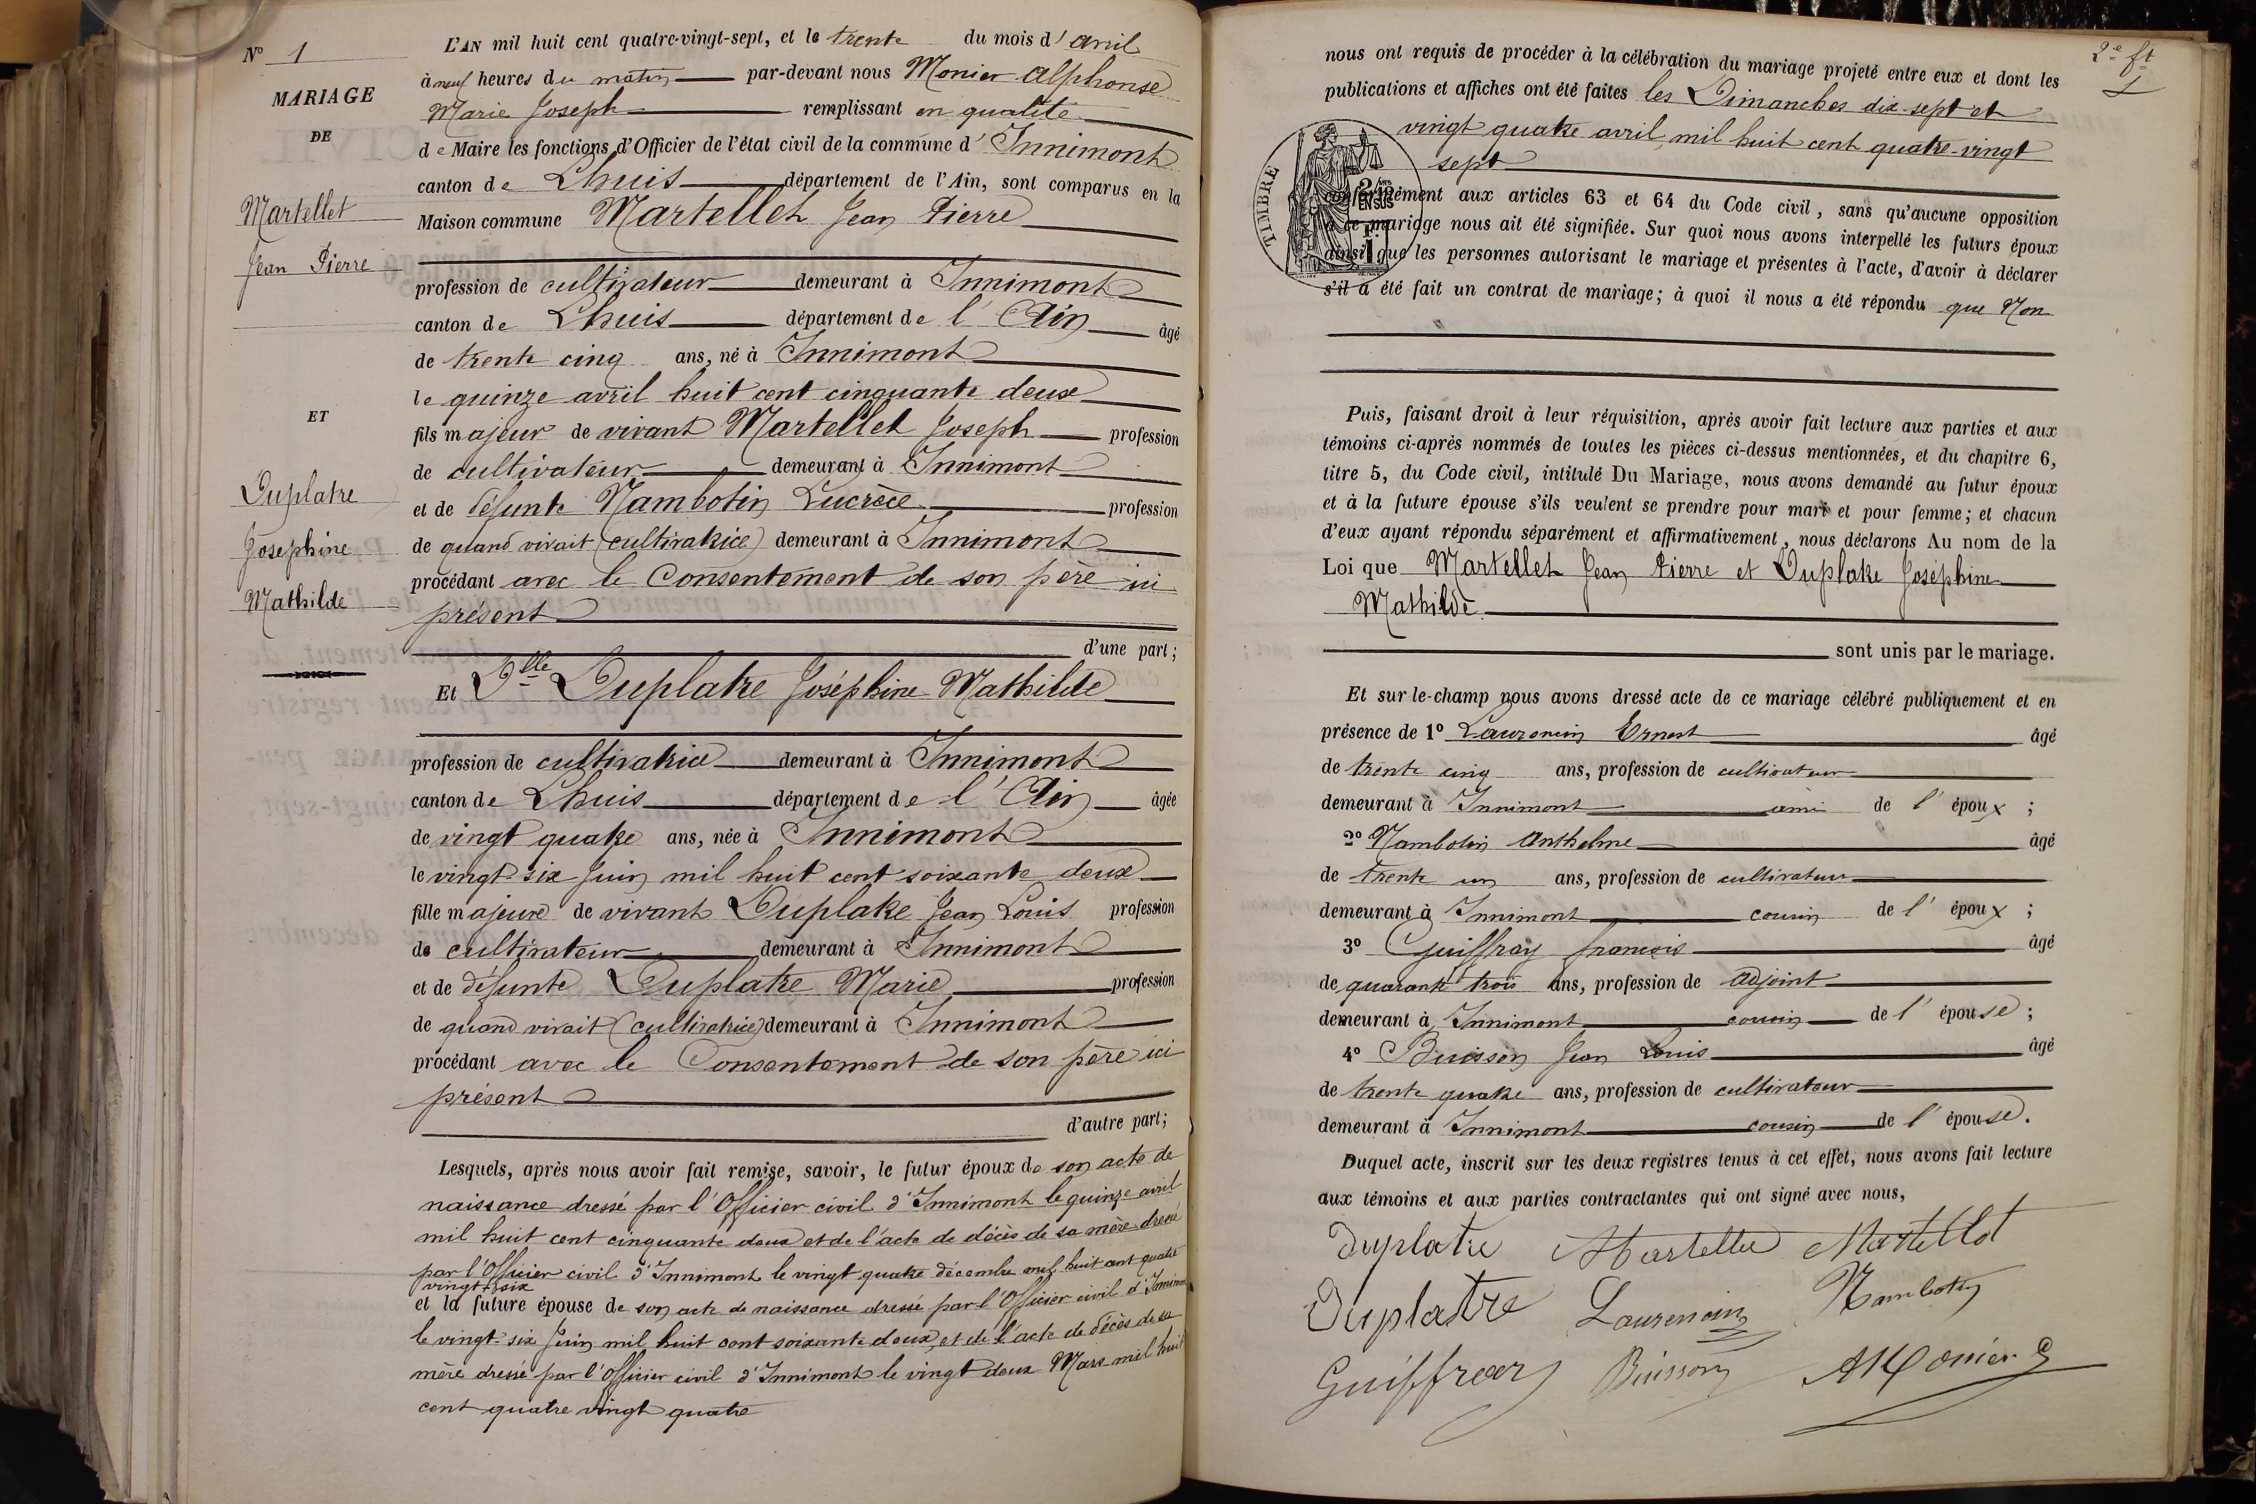 N° 1
MARIAGE
DE
Martellet
Jean Pierre
ET
Duplatre
Josephine
Mathilde
L'AN mil huit cent quatre-vingt-sept, et le trente du mois d'avril
à neuf heures du matin par-devant nous Monier Alphonse
Marie Joseph remplissant en qualité
de Maire les fonctions d'Officier de l'état civil de la commune d'Innimont
canton de Lhuis département de l'Ain, sont comparus en la
Maison commune Martellet Jean Pierre
profession de cultivateur demeurant à Innimont
canton de Lhuis département de l'Ain âgé
de trente cinq ans, né à Innimont
le quinze avril huit cent cinquante deux
fils majeur de vivant Martellet Joseph profession
de cultivateur demeurant à Innimont
et de défunte Nambotin Lucrèce profession
de quand vivait (cultivatrice) demeurant à Innimont
procédant avec le Consentement de son père ici
présent
d'une part;
Et Dlle Duplatre Joséphine Mathilde
profession de cultivatrice demeurant à Innimont
canton de Lhuis département de l'Ain âgée
de vingt quatre ans, née à Innimont
le vingt-six Juin mil huit cent soixante deux
fille majeure de vivant Duplatre Jean Louis profession
de cultivateur demeurant à Innimont
et de défunte Duplatre Marie profession
de quand vivait (cultivatrice) demeurant à Innimont
procédant avec le Consentement de son père ici
présent
d'autre part;
Lesquels, après nous avoir fait remise, savoir, le futur époux de son acte de
naissance dressé par l'Officier civil d'Innimont le quinze avril
mil huit cent cinquante deux et de l'acte de décès de sa mère dressé
par l'Officier civil d'Innimont le vingt quatre décembre mil huit cent quatre
vingt-six
et la future épouse de son acte de naissance dressé par l'Officier civil d'Innimont
le vingt-six Juin mil huit cent soixante deux, et de l'acte de décès de sa
mère dressé par l'Officier civil d'Innimont le vingt deux Mars mil huit
cent quatre vingt quatre
2e ft
nous ont requis de procéder à la célébration du mariage projeté entre eux et dont les
publications et affiches ont été faites les Dimanches dix-sept et
vingt quatre avril mil huit cent quatre-vingt
sept
TIMBRE
conformément aux articles 63 et 64 du Code civil, sans qu'aucune opposition
à ce mariage nous ait été signifiée. Sur quoi nous avons interpellé les futurs époux
ainsi que les personnes autorisant le mariage et présentes à l'acte, d'avoir à déclarer
s'il a été fait un contrat de mariage; à quoi il nous a été répondu que Non
Puis, faisant droit à leur réquisition, après avoir fait lecture aux parties et aux
témoins ci-après nommés de toutes les pièces ci-dessus mentionnées, et du chapitre 6,
titre 5, du Code civil, intitulé Du Mariage, nous avons demandé au futur époux
et à la future épouse s'ils veulent se prendre pour mari et pour femme; et chacun
d'eux ayant répondu séparément et affirmativement, nous déclarons Au nom de la
Loi que Martellet Jean Pierre et Duplatre Joséphine
Mathilde
sont unis par le mariage.
Et sur-le-champ nous avons dressé acte de ce mariage célébré publiquement et en
présence de 1° Laurencin Ernest âgé
de trente cinq ans, profession de cultivateur
demeurant à Innimont ami de l'époux;
2° Nambotin Anthelme âgé
de trente un ans, profession de cultivateur
demeurant à Innimont cousin de l'époux;
3° Guiffray francois âgé
de quarante trois ans, profession de adjoint
demeurant à Innimont cousin de l'épouse;
4° Buisson Jean Louis âgé
de trente quatre ans, profession de cultivateur
demeurant à Innimont cousin de l'épouse.
Duquel acte, inscrit sur les deux registres tenus à cet effet, nous avons fait lecture
aux témoins et aux parties contractantes qui ont signé avec nous,
Duplatre Martellet Martellet
Duplatre Laurencin Nambotin
Guiffray Buisson A Monier